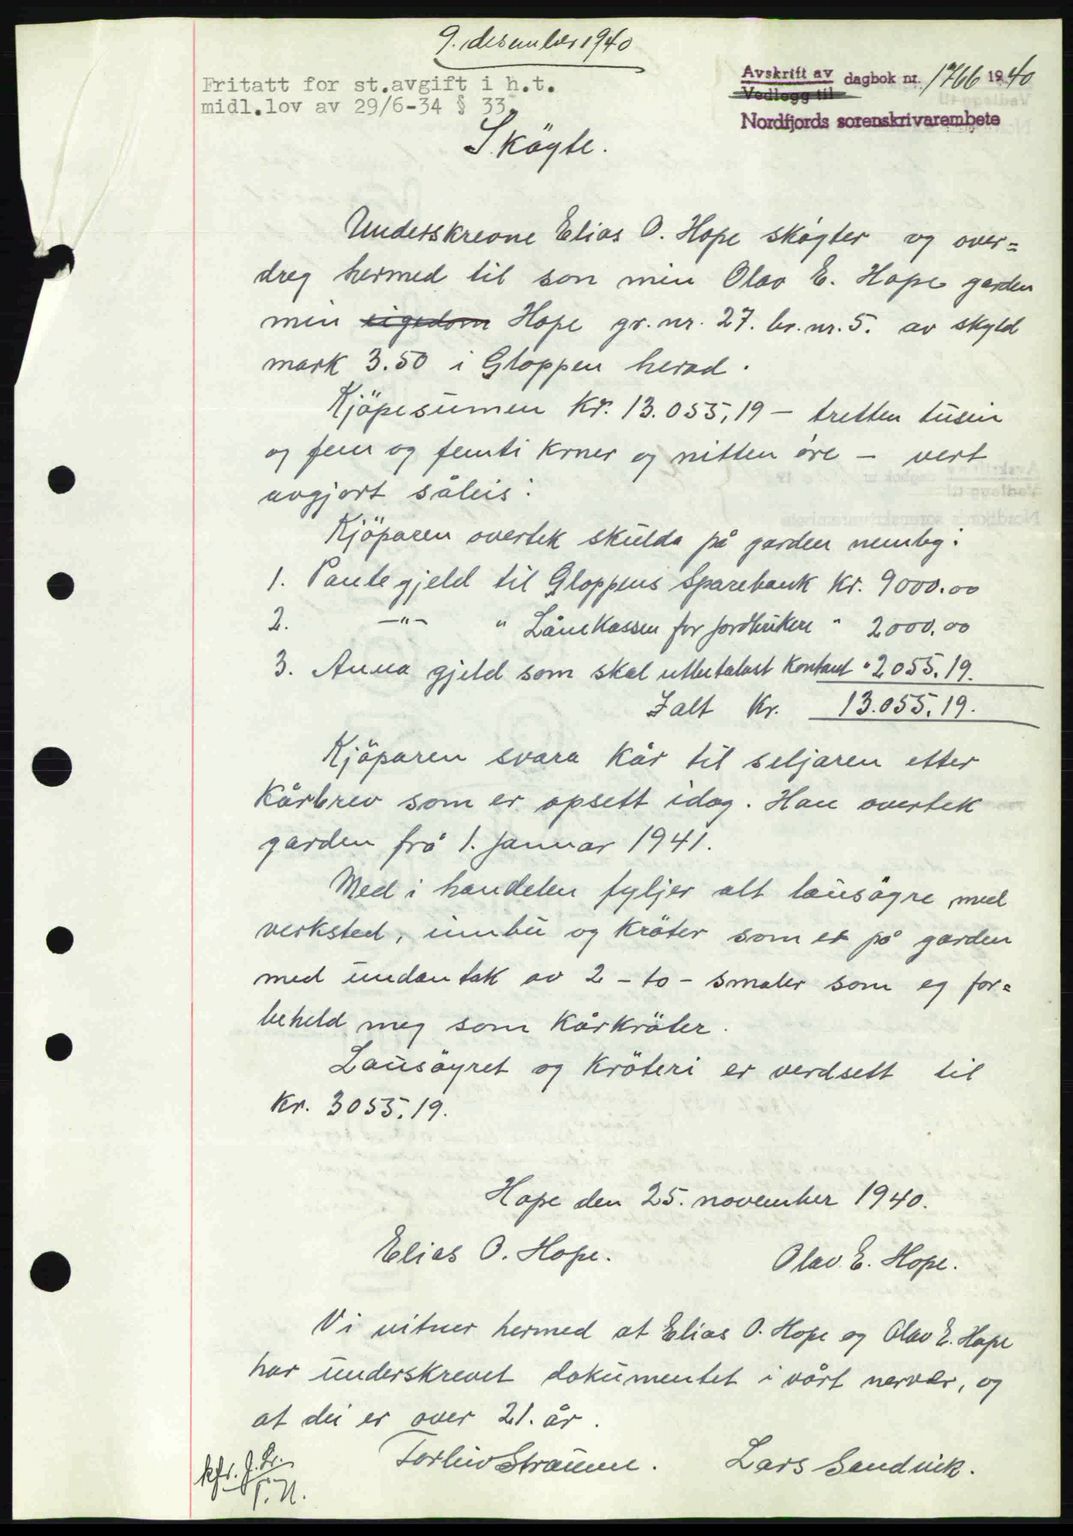 9. desember 1940
Fritatt for st.avgift i h.t.
midl.lov av 29/6-34 § 33.
Avskrift av dagbok nr. 1766 1940
Vedlegg til
Nordfjords sorenskrivarembete
Sköyte.
Underskrevne Elias O. Hope sköyter og over=
dreg hermed til son min Olav E. Hope garden
min eigedom Hope gr.nr. 27. br.nr. 5. av skyld
mark 3.50 i Gloppen herad.
Kjöpesumen Kr. 13.055,19 - tretten tusin
og fem og femti krner og nitten öre - vert
avgjort såleis:
Kjöparen overtek skulda på garden nemleg:
1. Pantegjeld til Gloppens Sparebank Kr. 9000.00
2. -"- " Lånekassen for jordbrukere " 2000.00
3. Anna gjeld som skal utbetalast kontant " 2055.19.
Ialt Kr. 13.055.19.
Kjöparen svara kår til seljaren etter
kårbrev som er opsett idag. Han overtek
garden frå 1. januar 1941.
Med i handelen fyljer alt lausöyre med
verksted, innbu og kröter som er på garden
med undantak av 2 - to - smaler som eg for=
beheld meg som kårkröter.
Lausöyret og kröteri er verdsett til
kr. 3055.19.
Hope den 25. november 1940.
Elias O. Hope. Olav E. Hope.
Vi vitner hermed at Elias O. Hope og Olav E. Hope
har underskrevet dokumentet i vårt nervær, og
at dei er over 21. år.
Torleiv Straume. Lars Sandvik.
kfr. J.Fr.
T.N.